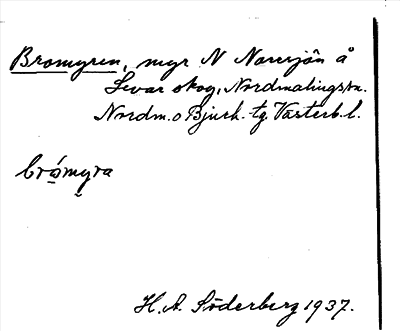 Bromyren, myr N Narrsjön å
Levar skog, Nordmalings sn.
Nordm. o Bjurh. tg. Västerb. l.
brómyra
H. A. Söderberg 1937.